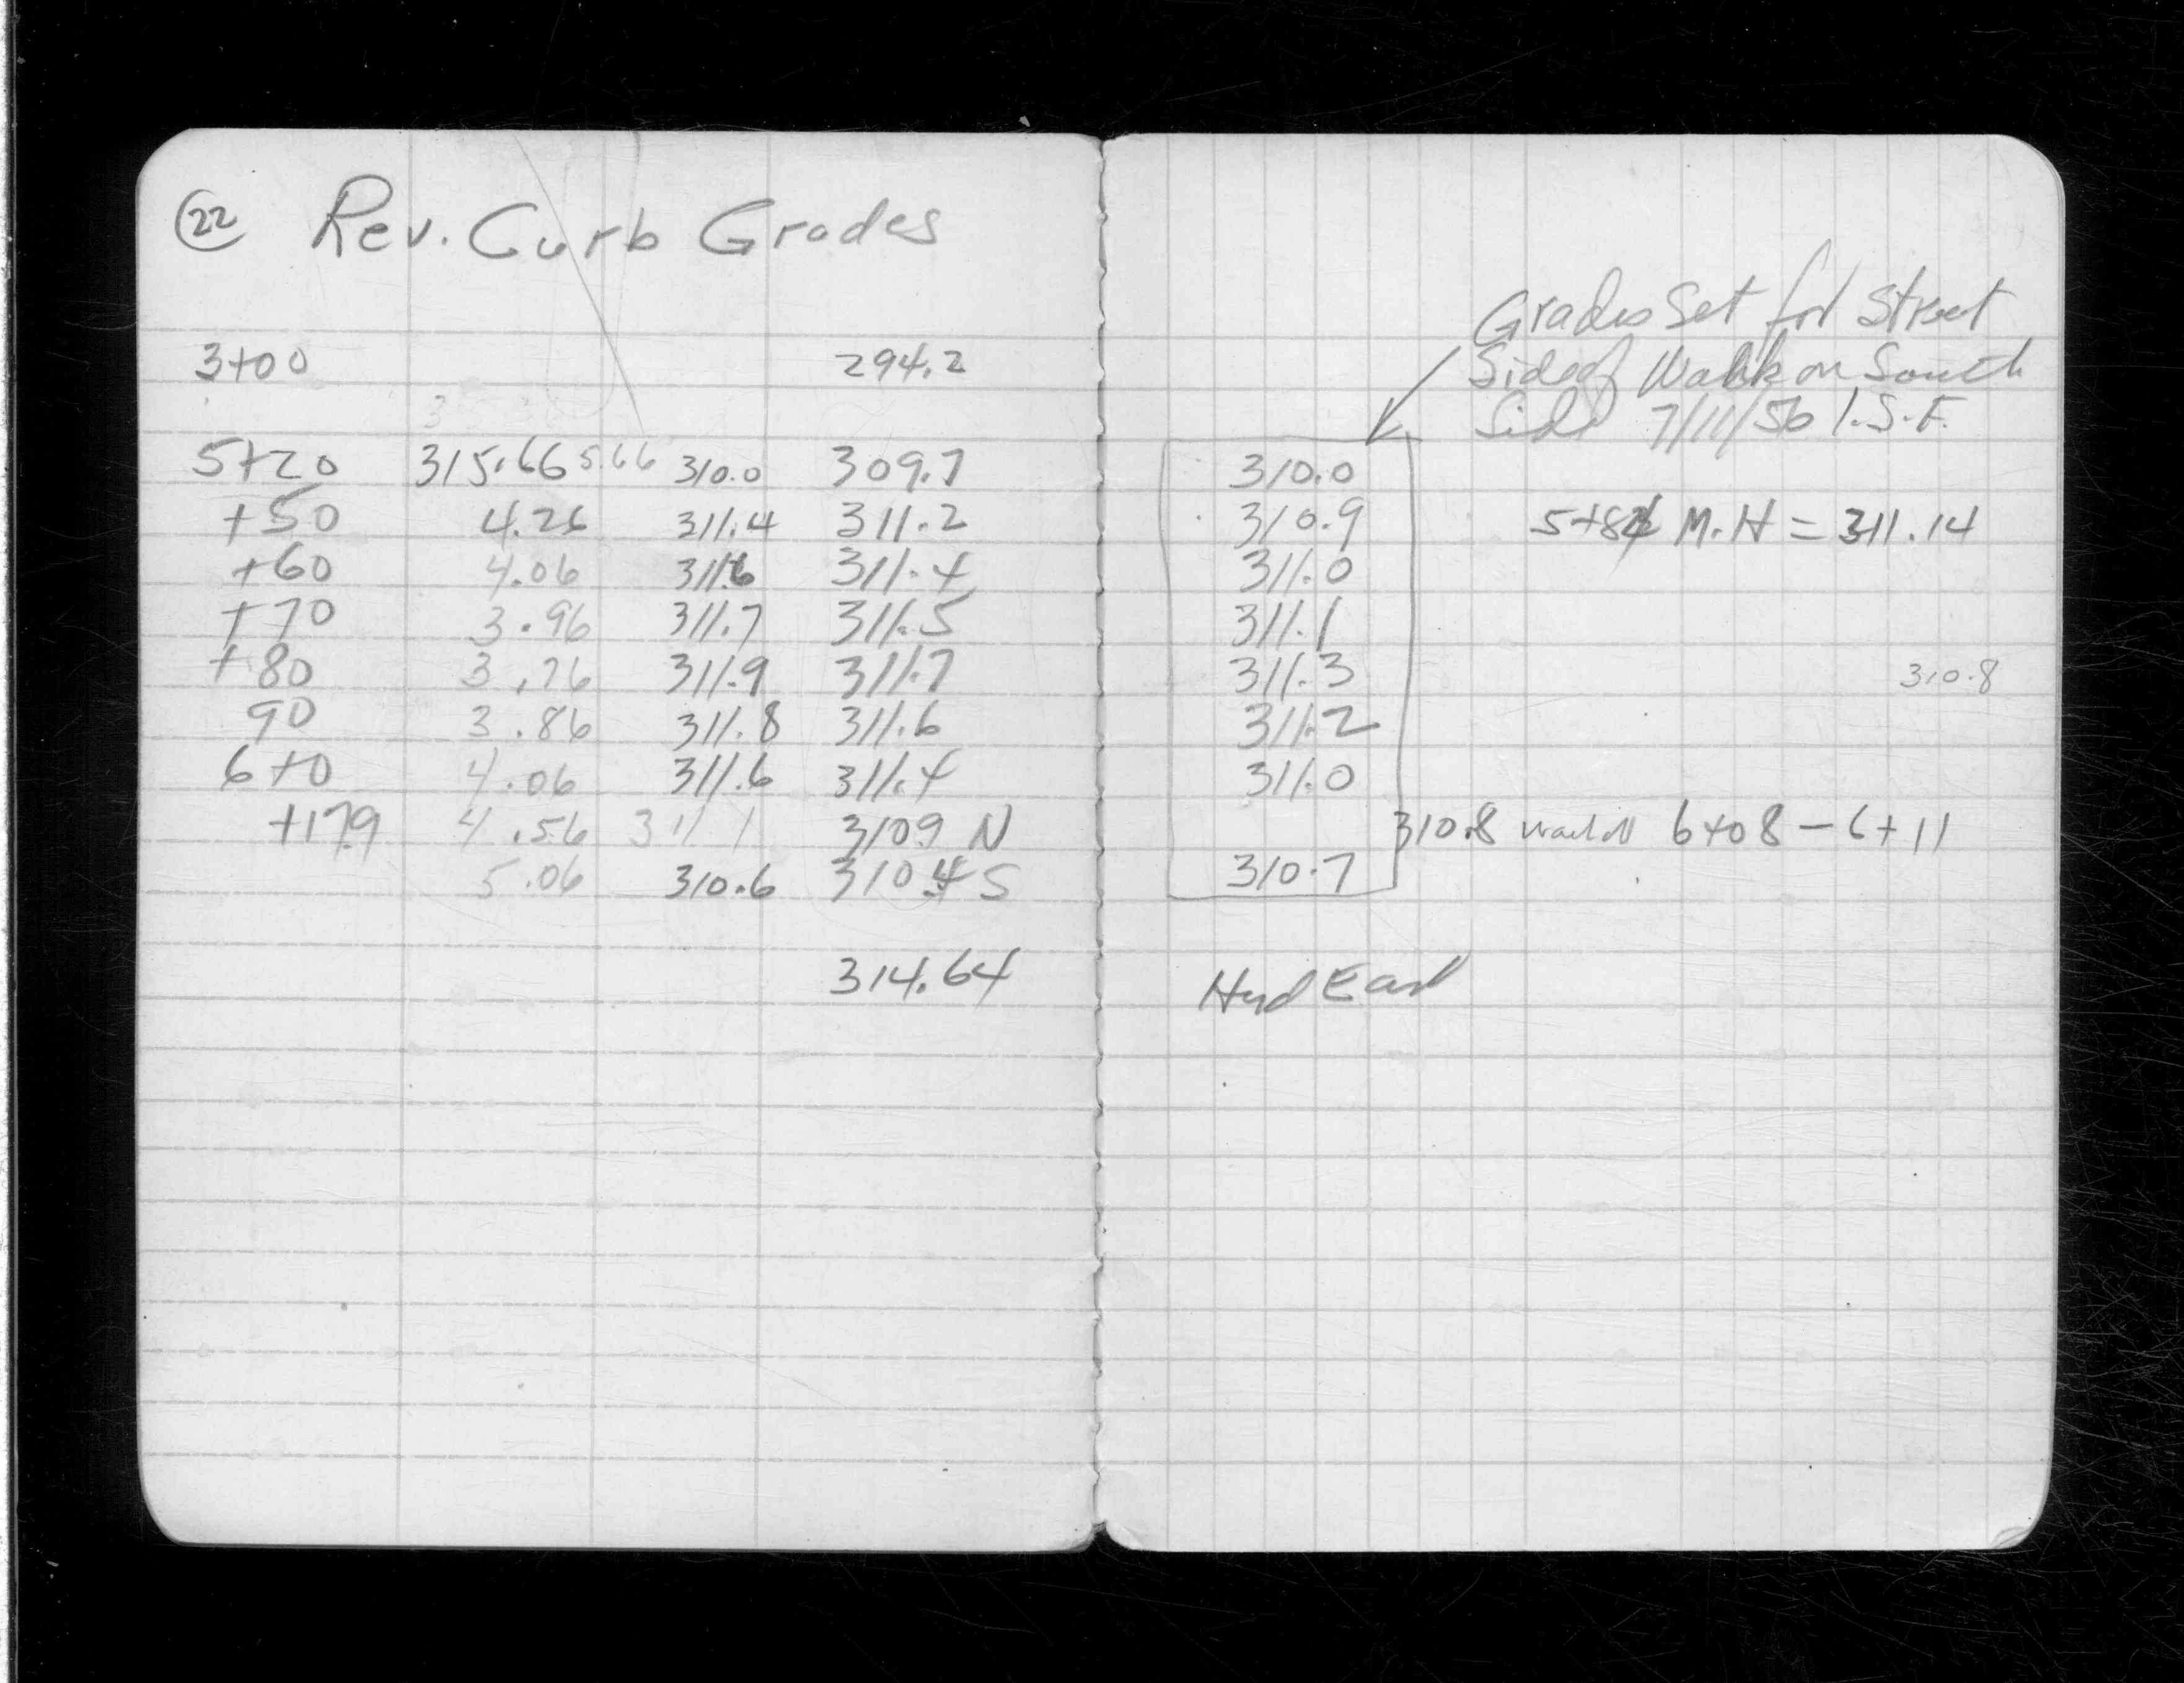 22 Rev. Curb Grades
3+00 294.2
5+20 315.66 5.66 310.0 309.7
+50 4.26 311.4 311.2
+60 4.06 311.6 311.4
+70 3.96 311.7 311.5
+80 3.76 311.9 311.7
90 3.86 311.8 311.6
6+0 4.06 311.6 311.4
+17.9 4.56 311 1 310.9 N
5.06 310.6 310.4 S
314.64
Grades Set for Street
Side of Walk on South
Side 7/11/56 I.S.F.
310.0
310.9 5+84 M.H = 311.14
311.0
311.1
311.3 310.8
311.2
311.0
310.8 6+08 - 6+11
310.7
Hyd East